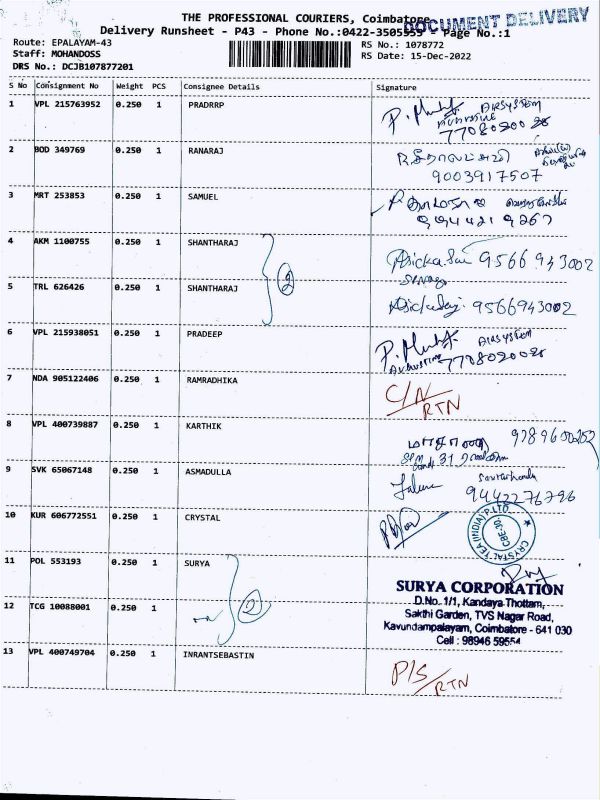 THE PROFESSIONAL COURIERS, Coimbatore
DOCUMENT DELIVERY
Delivery Runsheet - P43 - Phone No.:0422-3505555 - Page No.:1
Route: EPALAYAM-43
RS No.: 1078772
Staff: MOHANDOSS
RS Date: 15-Dec-2022
DRS No.: DCJB107877201
S No Consignment No Weight PCS Consignee Details Signature
1 VPL 215763952 0.250 1 PRADRRP
P. AIRSYSTEM
7708020028
2 BOD 349769 0.250 1 RANARAJ
9003917507
3 MRT 253853 0.250 1 SAMUEL
9944219267
4 AKM 1100755 0.250 1 SHANTHARAJ 9566943002
2
5 TRL 626426 0.250 1 SHANTHARAJ 9566943002
6 VPL 215938051 0.250 1 PRADEEP
P. AIRSYSTEM
7708020028
7 NDA 905122406 0.250 1 RAMRADHIKA C/N
RTN
8 VPL 400739887 0.250 1 KARTHIK
9 SVK 65067148 0.250 1 ASMADULLA
9442276796
10 KUR 606772551 0.250 1 CRYSTAL
CRYSTAL TEA (INDIA) P.LTD. CBE-30
11 POL 553193 0.250 1 SURYA
SURYA CORPORATION
D.No. 1/1, Kandaya Thottam,
12 TCG 10088001 0.250 1 2
Sakthi Garden, TVS Nagar Road,
Kavundampalayam, Coimbatore - 641 030
Cell : 98946 59554
13 VPL 400749704 0.250 1 INRANTSEBASTIN P/S
RTN